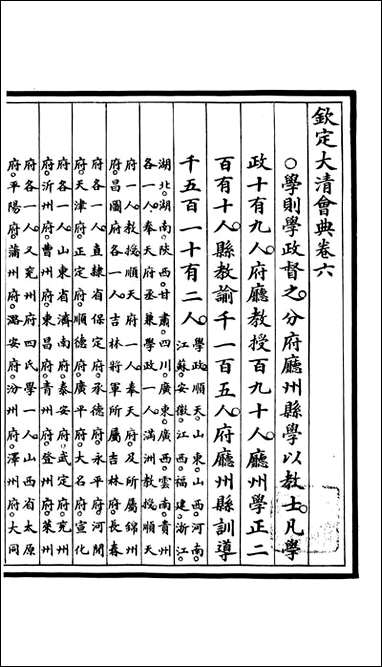 欽定大清會典卷六
○學則學政督之分府廳州縣學以教士凡學
政十有九人府廳教授百九十人廳州學正二
百有十人縣教諭千一百五人府廳州縣訓導
千五百一十有二人學政順天山東山西河南
江蘇安徽江西福建浙江
湖北湖南陝西甘肅四川廣東廣西雲南貴州
各一人奉天府丞兼學政一人滿洲教授順天
府一人教授順天府一人奉天府及所屬錦州
府昌圖府各一人吉林將軍所屬吉林府長春
府各一人直隸省保定府承德府永平府河間
府天津府正定府順德府廣平府大名府宣化
府各一人山東省濟南府泰安府武定府兗州
府沂州府曹州府東昌府青州府登州府萊州
府各一人又兗州府四氏學一人山西省太原
府平陽府蒲州府潞安府汾州府澤州府大同